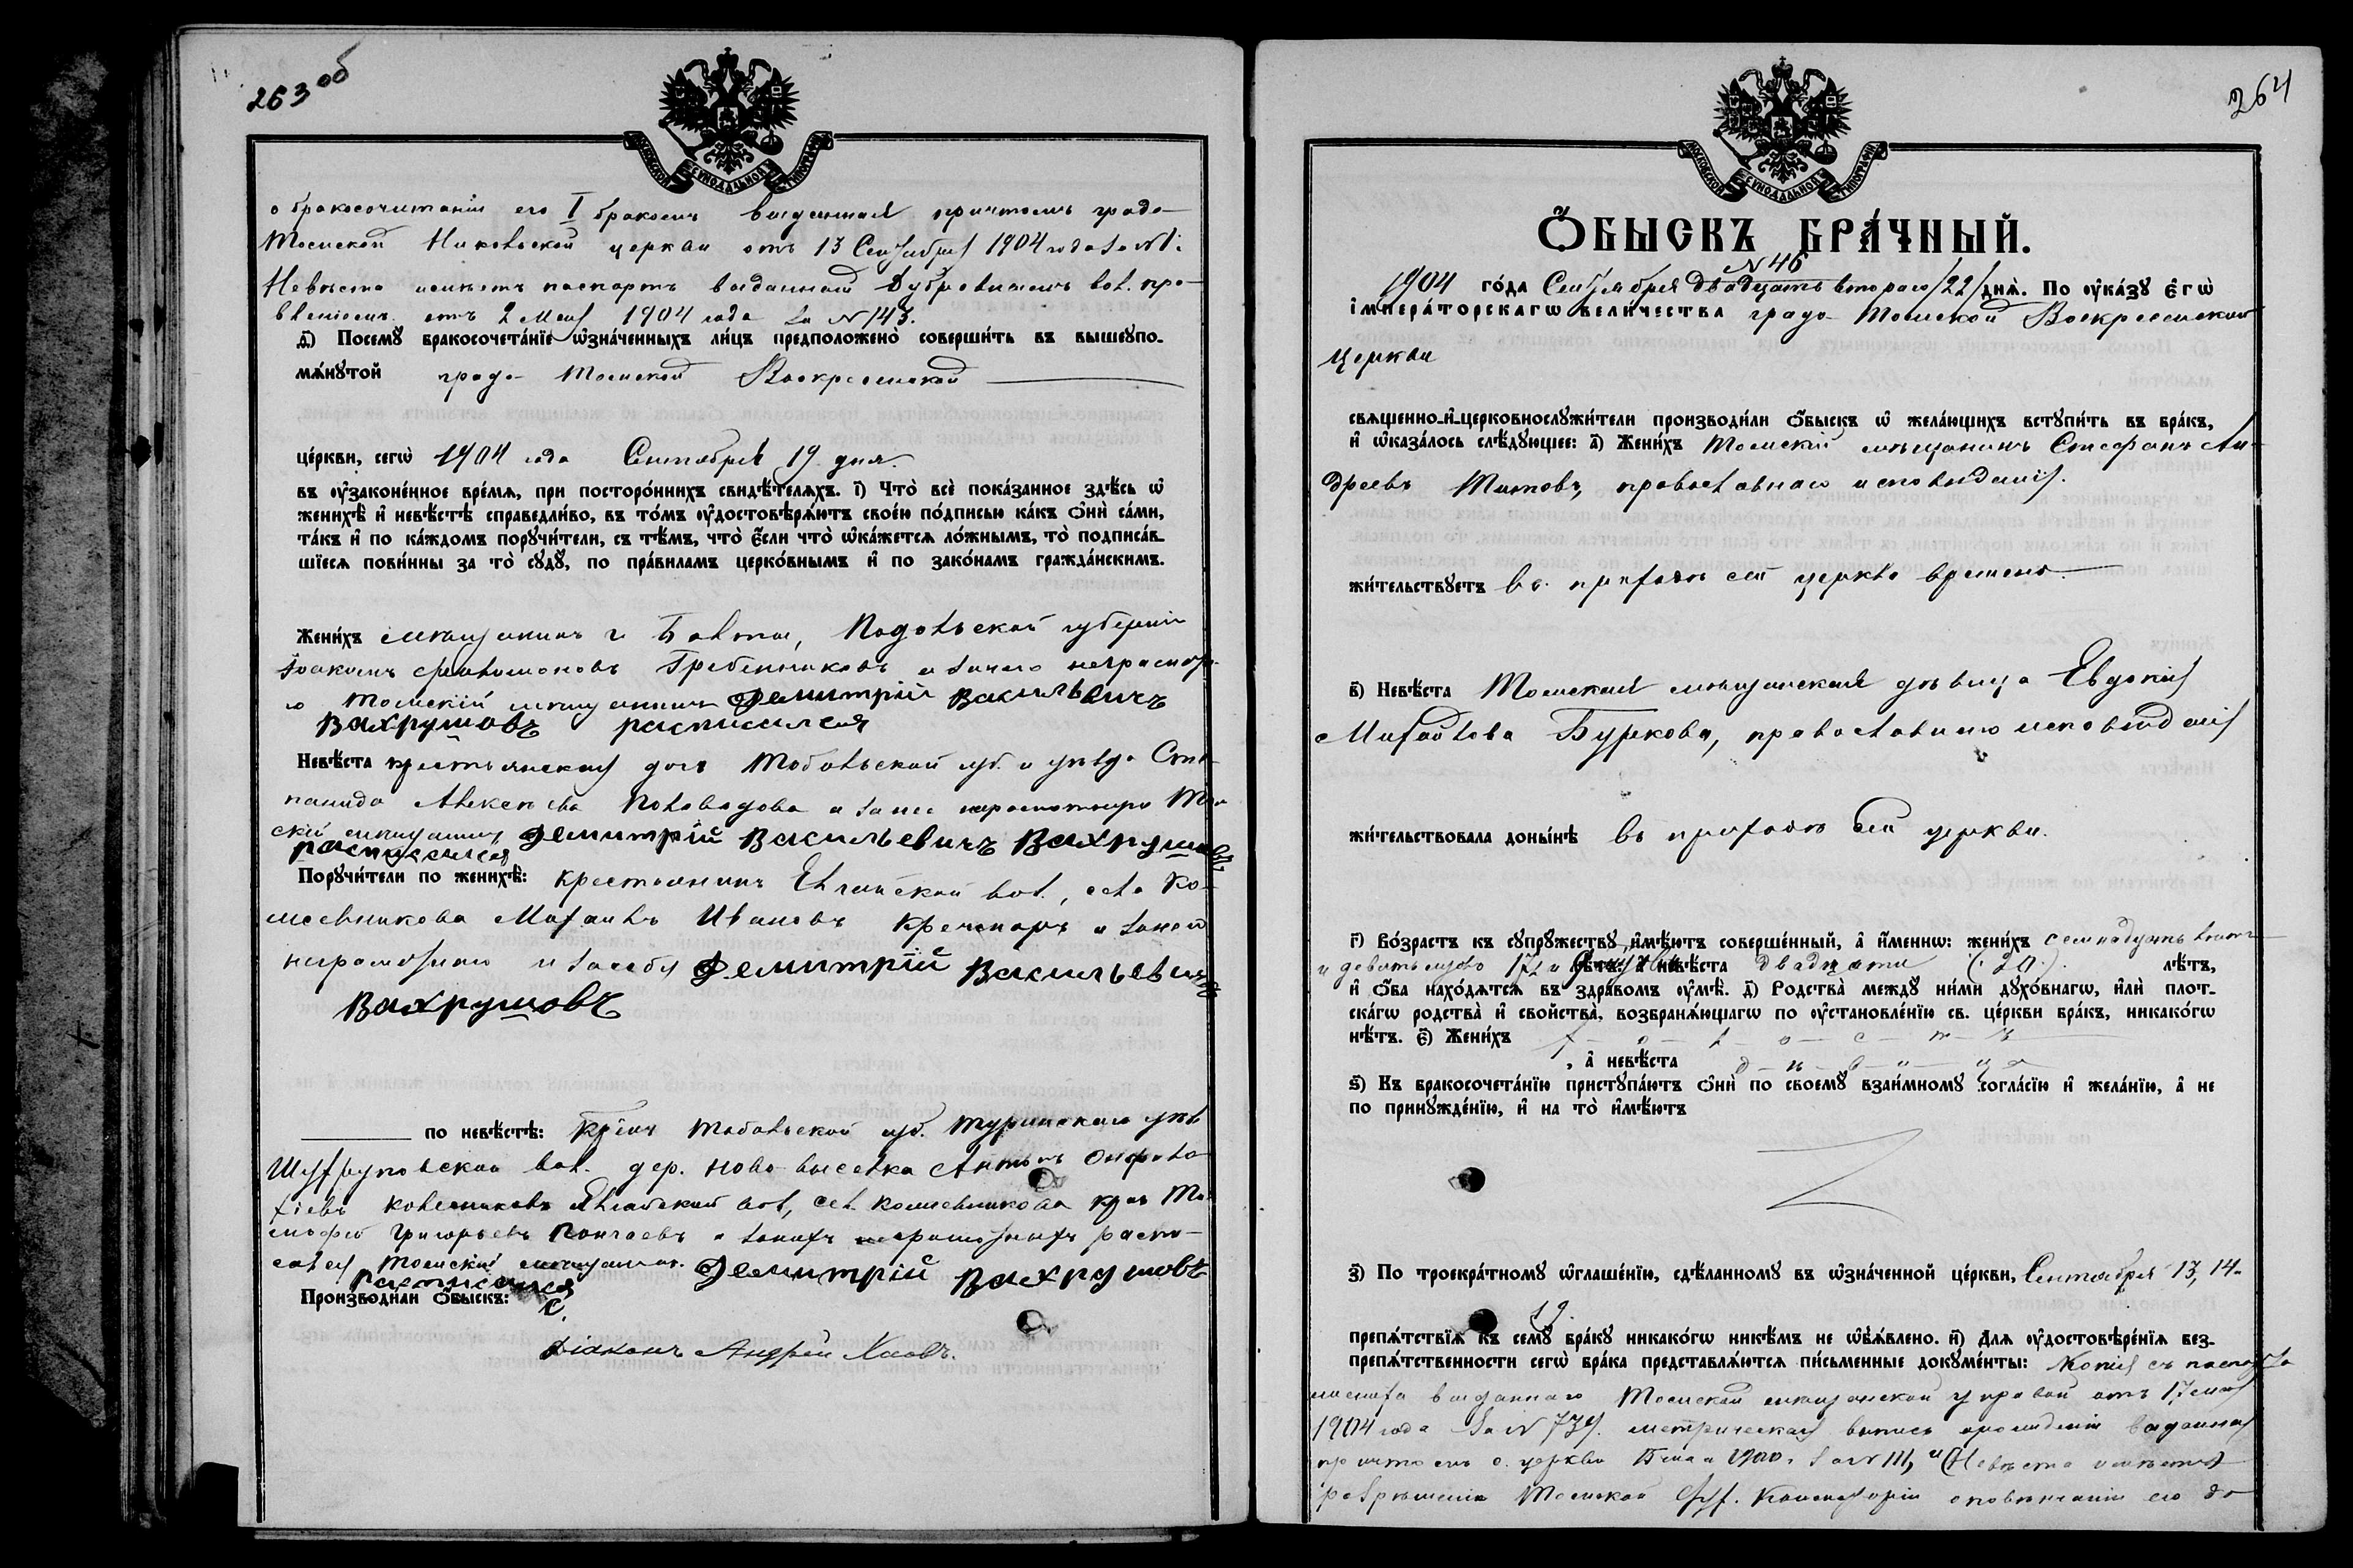 263 об
МОСКОВСКОЙ СѴНОДАЛЬНОЙ ТИПОГРАФІИ
о бракосочитаніи его I бракомъ выданная причтомъ градо-
Томской Никольской церкви отъ 13 Сентября 1904 года за №
Невѣста имѣетъ паспортъ выданный Дубровинымъ вол. пра-
вленіемъ отъ 2 Мая 1904 года за № 143.
д҃і) Посемꙋ бракосочета́нїе ѡ҆зна́ченныхъ ли́цъ предположено̀ соверши́ть въ вышеꙋпо-
мѧ́нꙋтой градо-Томской Воскресенской
це́ркви, сегѡ̀ 1904 года Сентября 19 дня.
въ ᲂу҆зако́ненное вре́мѧ, при посторо́ннихъ свидѣ́телѧхъ. і҃) Что̀ всѐ пока́занное здѣ́сь ѡ҆
женихѣ̀ и҆ невѣ́стѣ справедли́во, въ то́мъ ᲂу҆достовѣрѧ́ютъ свое́ю по́дписью ка́къ ѻ҆нѝ са́ми,
та́къ и҆ по ка́ждомъ порꙋчи́тели, съ тѣ́мъ, что̀ є҆́сли что̀ ѡ҆ка́жетсѧ ло́жнымъ, то̀ подписа́в-
шїесѧ пови́нны за то̀ сꙋдꙋ̀, по пра́виламъ церко́внымъ и҆ по зако́намъ гражда́нскимъ.
Жени́хъ мѣщанинъ г. Балты, Подольской губерніи
Іоакимъ Филимоновъ Гребенниковъ а за него неграмотна-
го Томскій мѣщанинъ Демитрій Васильевичъ
Вахрушовъ расписался
Невѣ́ста крестьянская дочь Тобольской губ. и уѣзда Сте-
панида Алексѣева Половодова а за нее неграмотную Том
скій мѣщанинъ Демитрій Васильевичъ Вахрушовъ
расписался
Порꙋчи́тели по женихѣ̀: крестьянинъ Елгайской вол., села Ко-
жевникова Михаилъ Ивановъ а за него
неграмотнаго и за себя Демитрій Васильевичъ
Вахрушовъ
по невѣ́стѣ: Кр-нъ Тобольской губ. Туринскаго уѣз.
вол. дер. Ново-выселка Антонъ
Колесниковъ Елгайской вол., сел. Кожевникова кр-нъ Ти
мофей Григорьевъ а за нихъ неграмотныхъ распи-
сался Томскій мѣщанин. Демитрій Вахрушовъ
расписался
Производи́ли ѻ҆́быскъ:
Діаконъ Андрей
264
МОСКОВСКОЙ СѴНОДАЛЬНОЙ ТИПОГРАФІИ
Ѻ҆́БЫСКЪ БРА́ЧНЫЙ.
№ 46
1904 го́да Сентября двадцать втораго /22/ днѧ̀. По ᲂу҆ка́зꙋ є҆гѡ̀
і҆мпера́торскагѡ вели́чества градо-Томской Воскресенской
церкви
свѧще́нно-и҆-церковнослꙋжи́тели производи́ли ѻ҆́быскъ ѡ҆ жела́ющихъ встꙋпи́ть въ бра́къ,
и҆ ѡ҆каза́лось слѣ́дꙋющее: а҃) Жени́хъ Томскій мѣщанинъ Стефанъ Ан-
дреевъ Титовъ, православнаго исповѣданія.
жи́тельствꙋетъ въ приходѣ сей церкви временно.
в҃) Невѣ́ста Томская мѣщанская дѣвица Евдокія
Михайлова Буркова, православнаго исповѣданія
жи́тельствовала доны́нѣ въ приходѣ сей церкви.
г҃) Во́зрастъ къ сꙋпрꙋ́жествꙋ и҆мѣ́ютъ соверше́нный, а҆ и҆́меннѡ: жени́хъ семнадцать лѣтъ
и девять мѣс. 17 лѣ́тъ, а҆ невѣ́ста двадцати (20). лѣ́тъ,
и҆ ѻ҆́ба нахо́дѧтсѧ въ здра́вомъ ᲂу҆мѣ̀. д҃) Родства̀ междꙋ ни́ми дꙋхо́внагѡ, и҆лѝ плот-
ска́гѡ родства̀ и҆ сво́йства̀, возбранѧ́ющагѡ по ᲂу҆становле́нїю св. це́ркви бра́къ, никако́гѡ
нѣ́тъ. є҃) Жени́хъ х-о-л-о-с-т-ъ
, а҆ невѣ́ста д-ѣ-в-и-ц-а
ѕ҃) Къ бракосочета́нїю пристꙋпа́ютъ ѻ҆нѝ по своемꙋ̀ взаи́мномꙋ согла́сїю и҆ жела́нїю, а҆ не
по принꙋжде́нїю, и҆ на то̀ и҆мѣ́ютъ
з҃) По троекра́тномꙋ ѡ҆глаше́нїю, сдѣ́ланномꙋ въ ѡ҆зна́ченной це́ркви, Сентября 13, 14-
19.
препѧ́тствїѧ къ семꙋ̀ бра́кꙋ никако́гѡ никѣ́мъ не ѡ҆б̾ѧ́влено. и҃) Длѧ ᲂу҆достовѣре́нїѧ без-
препѧ́тственности сегѡ̀ бра́ка представлѧ́ютсѧ пи́сьменные докꙋме́нты: Копія съ паспорта
жениха выданнаго Томской мѣщанской управой отъ 17 мая
1904 года за № 739. метрическая выпись о рожденіи выданная
причтомъ с. церкви за № 111, и (Невѣста имѣетъ)
разрѣшеніе Томской Дух. Консисторіи о повѣнчаніи его до